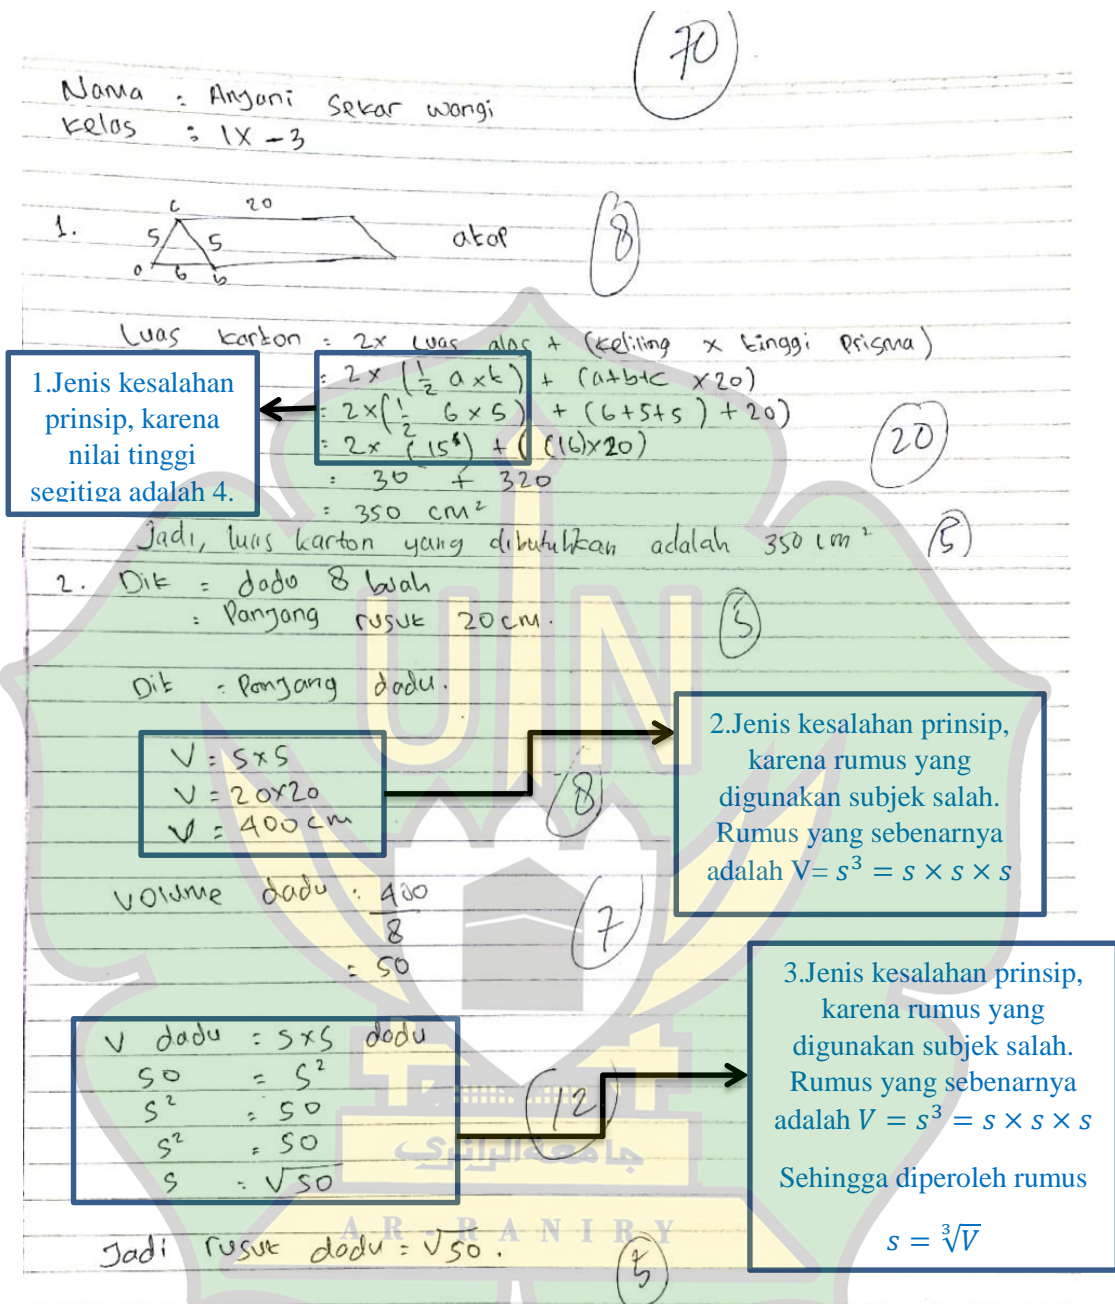 70
Nama : Anjani Sekar wangi
Kelas : IX - 3
1.
C 20
5 5
a 6 b
atap
8
Luas karton = 2x Luas alas + (keliling x tinggi prisma)
= 2 x (1/2 a x t) + (a+b+c x 20)
= 2 x (1/2 6 x 5) + (6+5+5) + 20)
= 2x (15) + ((16)x20)
= 30 + 320
= 350 cm²
20
Jadi, luas karton yang dibutuhkan adalah 350 cm²
5
1.Jenis kesalahan
prinsip, karena
nilai tinggi
segitiga adalah 4.
2. Dik = dadu 8 buah
: Panjang rusuk 20 cm.
5
Dit : Panjang dadu.
V = s x s
V = 20x20
V = 400 cm
8
2.Jenis kesalahan prinsip,
karena rumus yang
digunakan subjek salah.
Rumus yang sebenarnya
adalah V= s³ = s × s × s
Volume dadu : 400/8
= 50
7
V dadu : s x s dadu
50 = s²
s² = 50
s² = 50
s = √50
12
3.Jenis kesalahan prinsip,
karena rumus yang
digunakan subjek salah.
Rumus yang sebenarnya
adalah V = s³ = s × s × s
Sehingga diperoleh rumus
s = ∛V
Jadi rusuk dadu = √50.
5
UIN
جامعة الرانري
AR-RANIRY